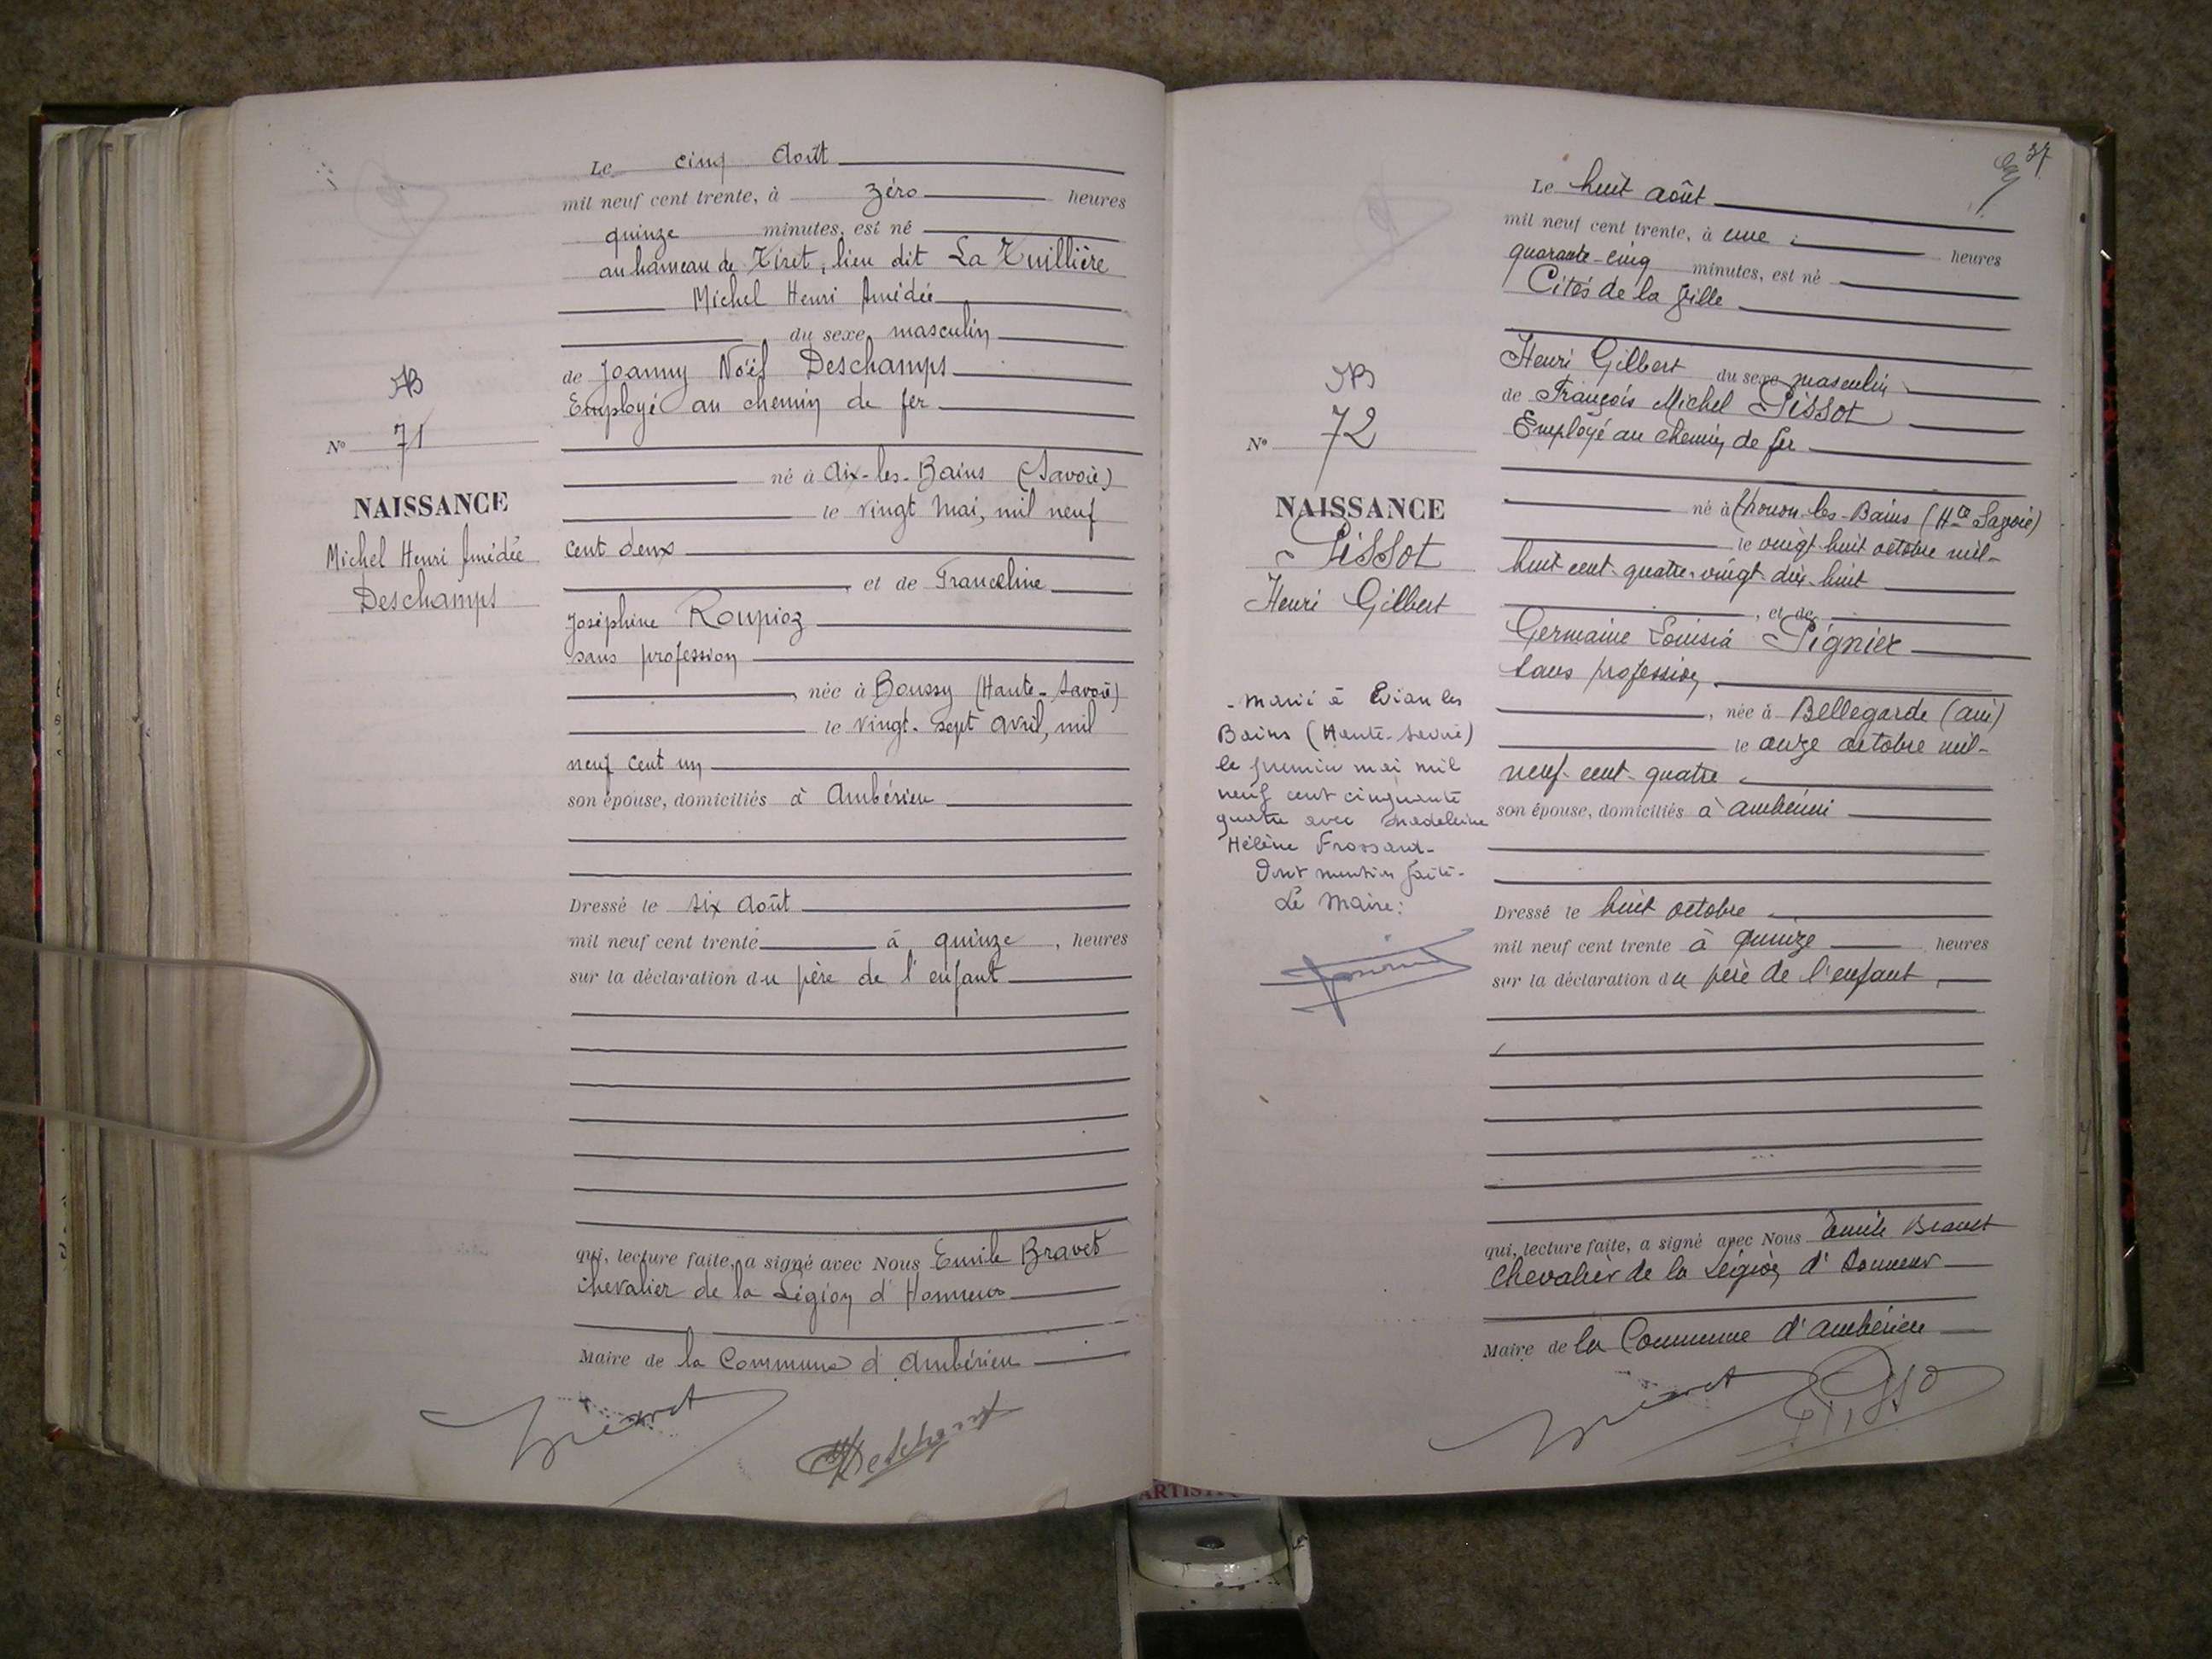 Le cinq Août
mil neuf cent trente, à zéro heures
quinze minutes, est né
au hameau de Tiret, lieu dit La Tuillière
Michel Henri Amédée
du sexe masculin
de Joanny Noël Deschamps
Employé au chemin de fer
né à Aix-les-Bains (Savoie)
le vingt Mai, mil neuf
cent deux
et de Franceline
Joséphine Roupioz
sans profession
née à Boussy (Haute-Savoie)
le vingt-sept avril, mil
neuf cent un
son épouse, domiciliés à Ambérieu
Dressé le six Août
mil neuf cent trente à quinze, heures
sur la déclaration du père de l'enfant
qui, lecture faite, a signé avec Nous Emile Bravet
chevalier de la Légion d'Honneur
Maire de la Commune d'Ambérieu
Bravet
Deschamps
AB
N° 71
NAISSANCE
Michel Henri Amédée
Deschamps
37
Le huit août
mil neuf cent trente, à une heures
quarante-cinq minutes, est né
Cités de la ville
Henri Gilbert du sexe masculin
de François Michel Pissot
Employé au chemin de fer
né à Thonon-les-Bains (Hte Savoie)
le vingt huit octobre mil-
huit cent-quatre-vingt-dix-huit
, et de
Germaine Louisia Pignier
sans profession
, née à Bellegarde (ain)
le onze octobre mil-
neuf-cent-quatre
son épouse, domiciliés à ambérieu
Dressé le huit octobre
mil neuf cent trente à quinze heures
sur la déclaration du père de l'enfant
qui, lecture faite, a signé avec Nous Emile Bravet
chevalier de la Légion d'honneur
Maire de la Commune d'ambérieu
Bravet
Pisso
N° 72
NAISSANCE
Pissot
Henri Gilbert
- Marié à Evian les
Bains (Haute-Savoie)
le premier mai mil
neuf cent cinquante
quatre avec Madeleine
Hélène Frossard-
Dont mention faite-
Le Maire:
ARTISTI